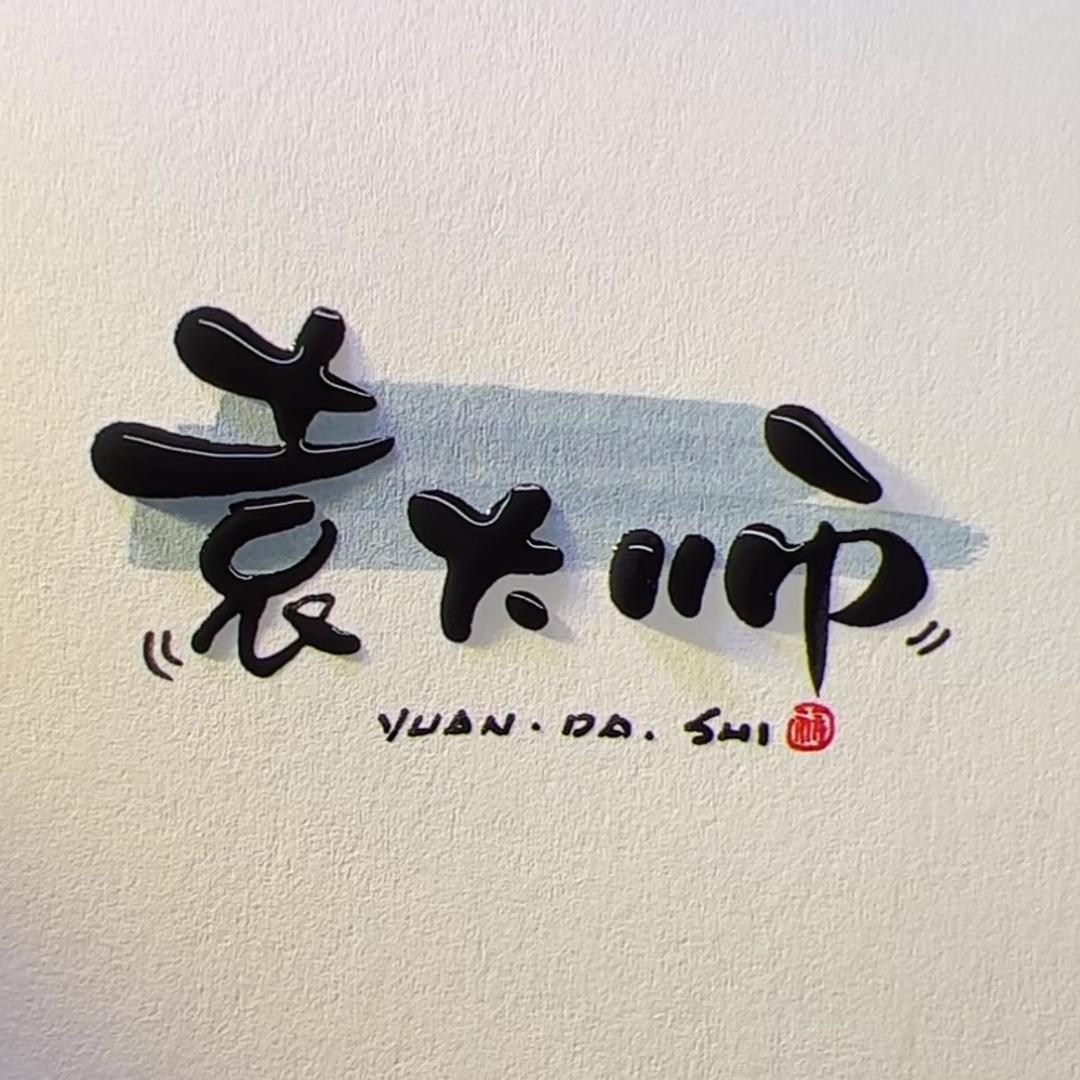 袁大师
YUAN·DA.SHI